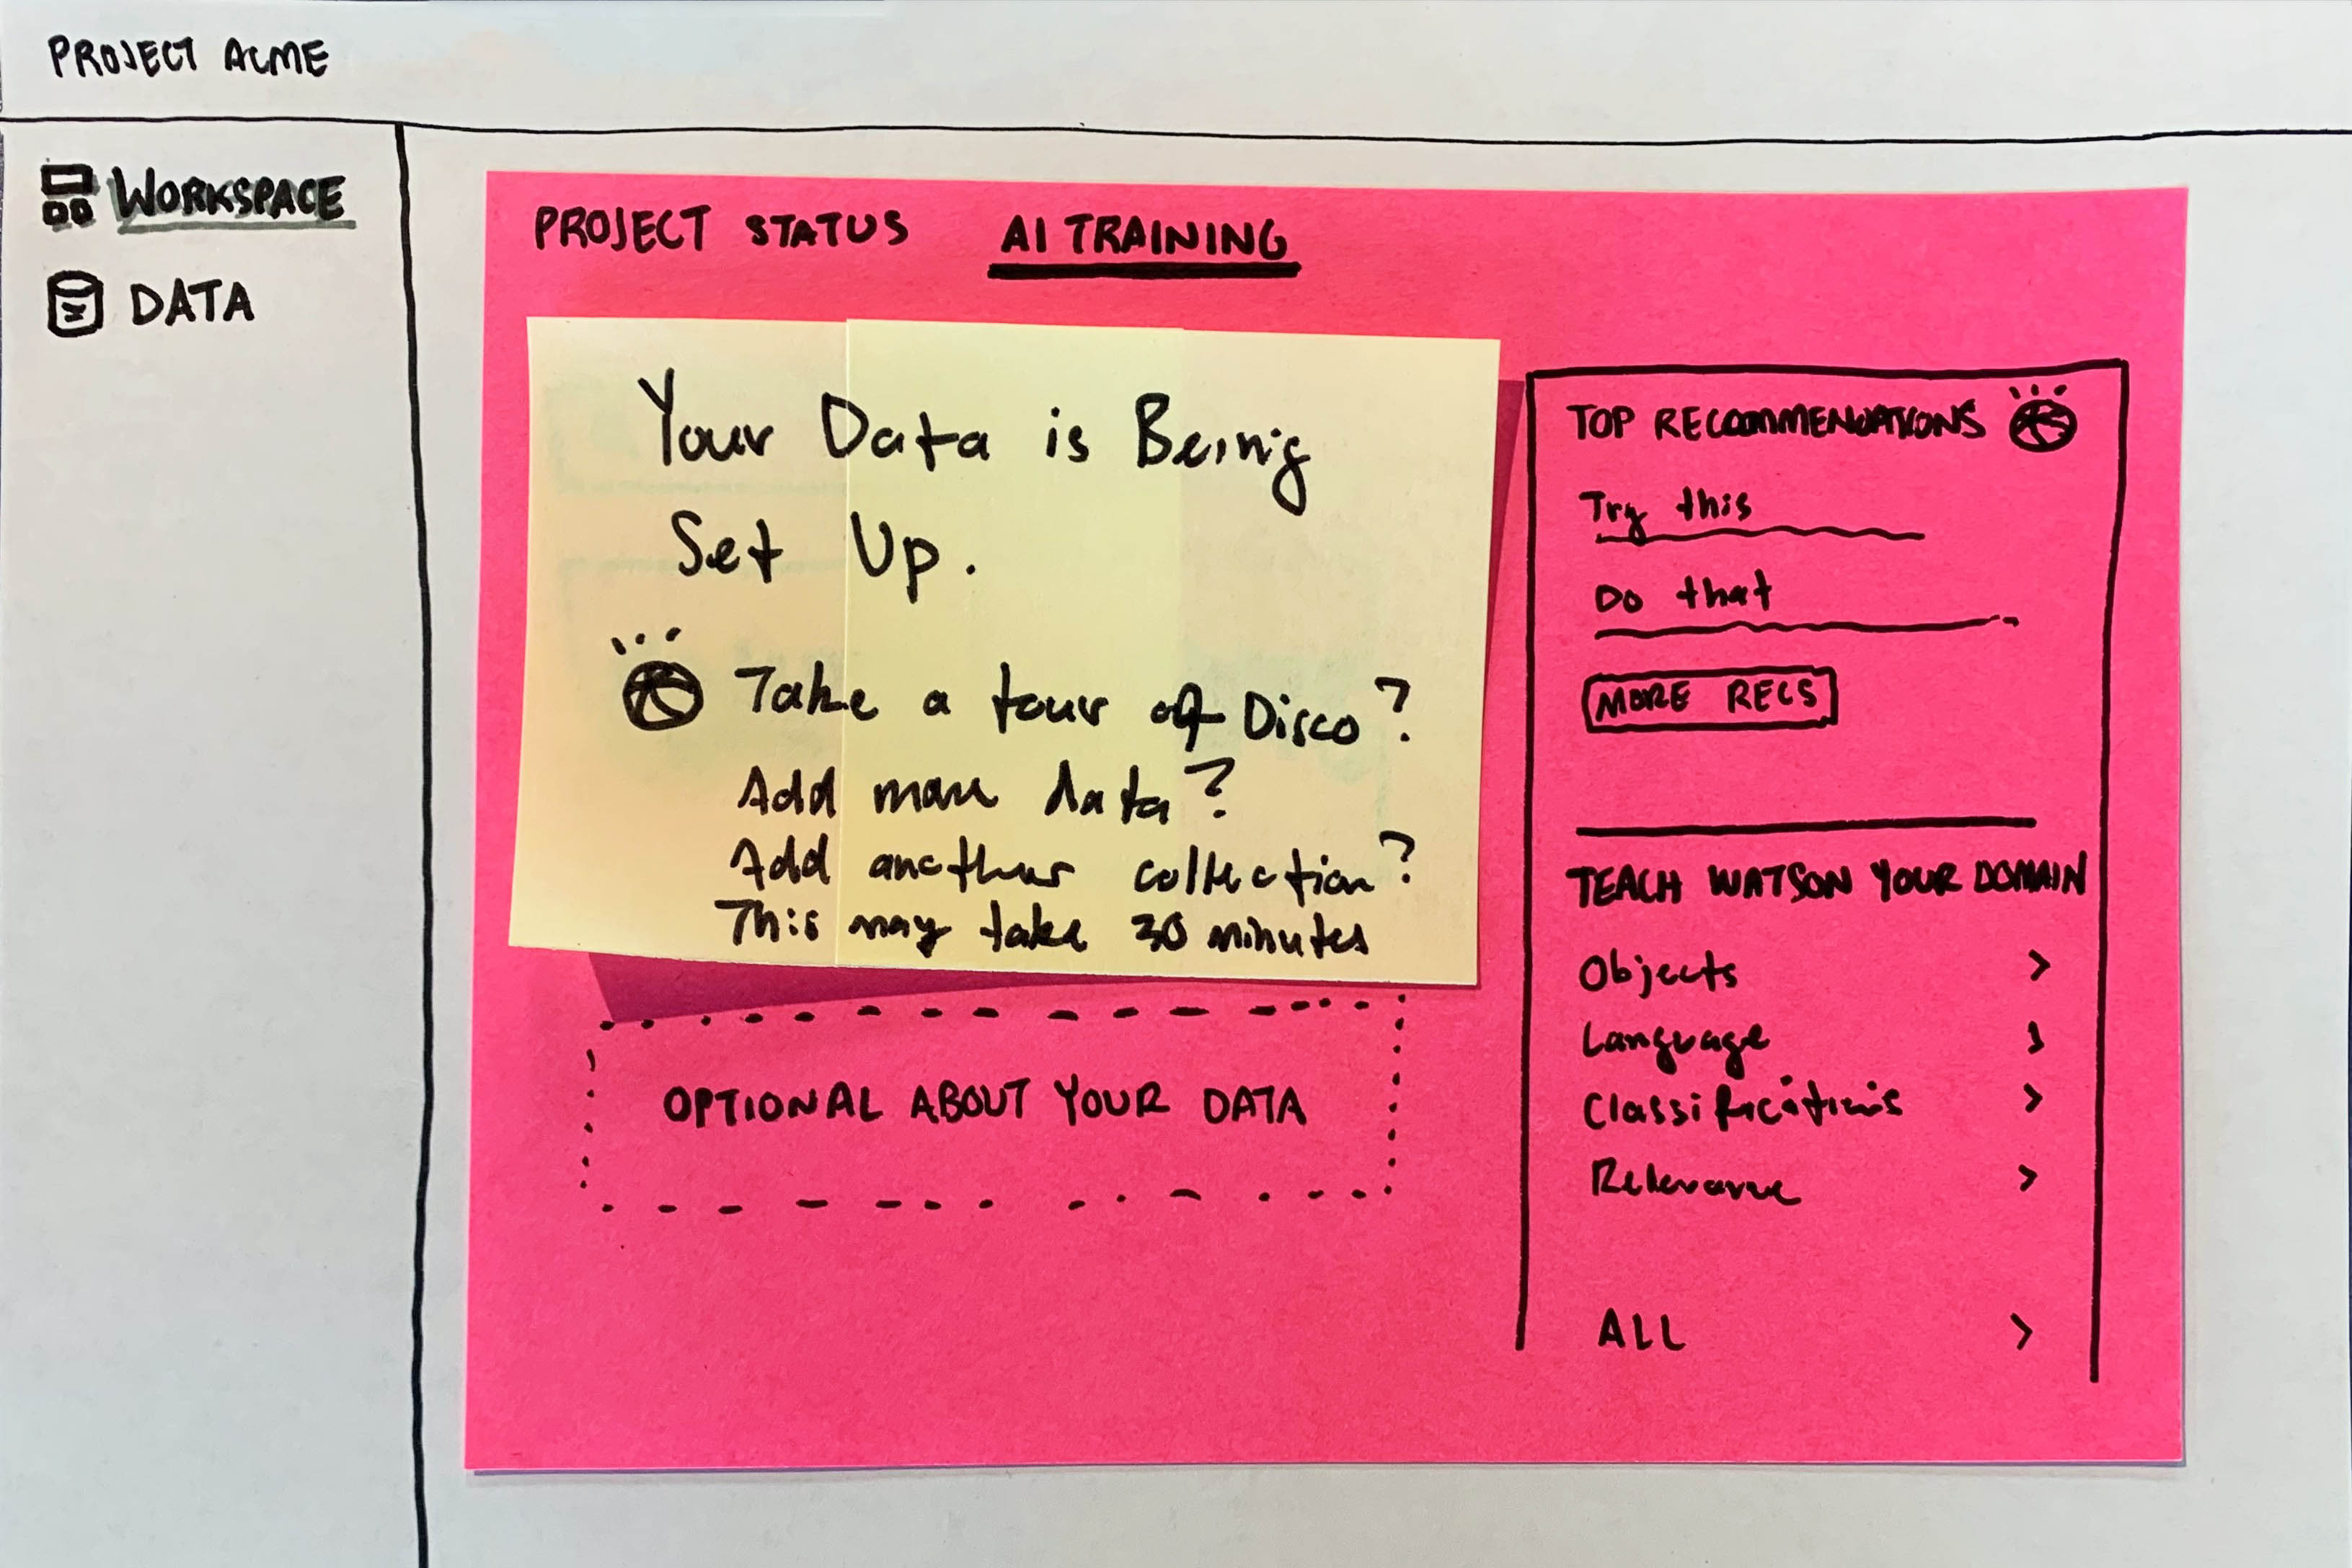 PROJECT ACME
WORKSPACE
DATA
PROJECT STATUS
AI TRAINING
Your Data is Being
Set Up.
Take a tour of Disco?
Add more data?
Add another collection?
This may take 30 minutes
OPTIONAL ABOUT YOUR DATA
TOP RECOMMENDATIONS
Try this
Do that
MORE RECS
TEACH WATSON YOUR DOMAIN
Objects >
Language >
Classifications >
Relevance >
ALL >